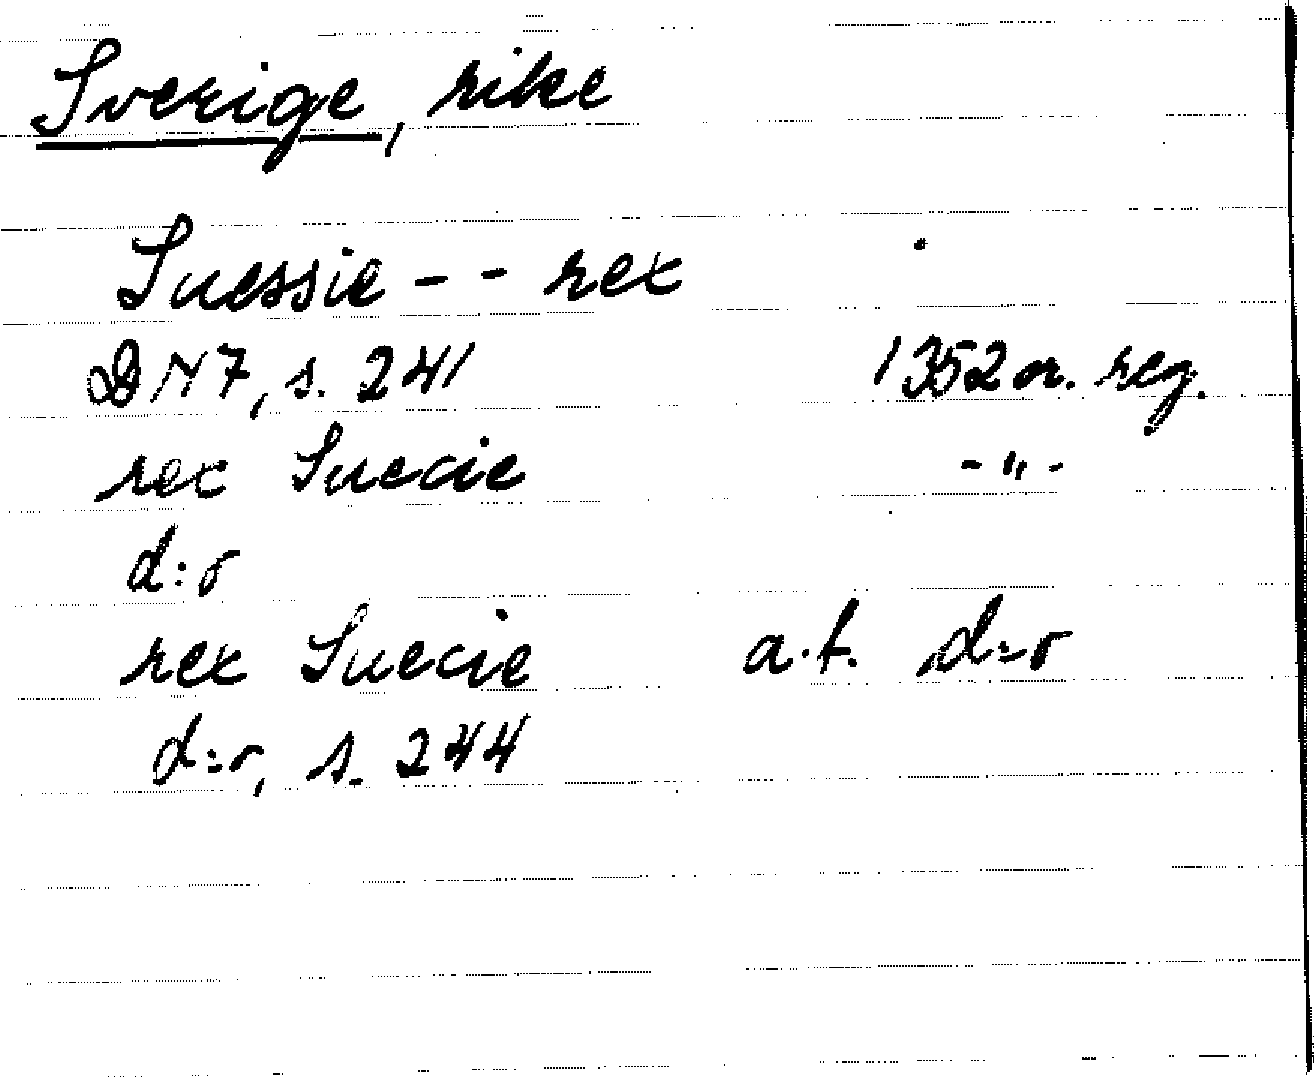 Sverige, rike
Suessie - - rex
DN 7, s. 241 1352 or. reg.
rex Suecie - " -
d:o
rex Suecie a.t. d:o
d:o, s. 244